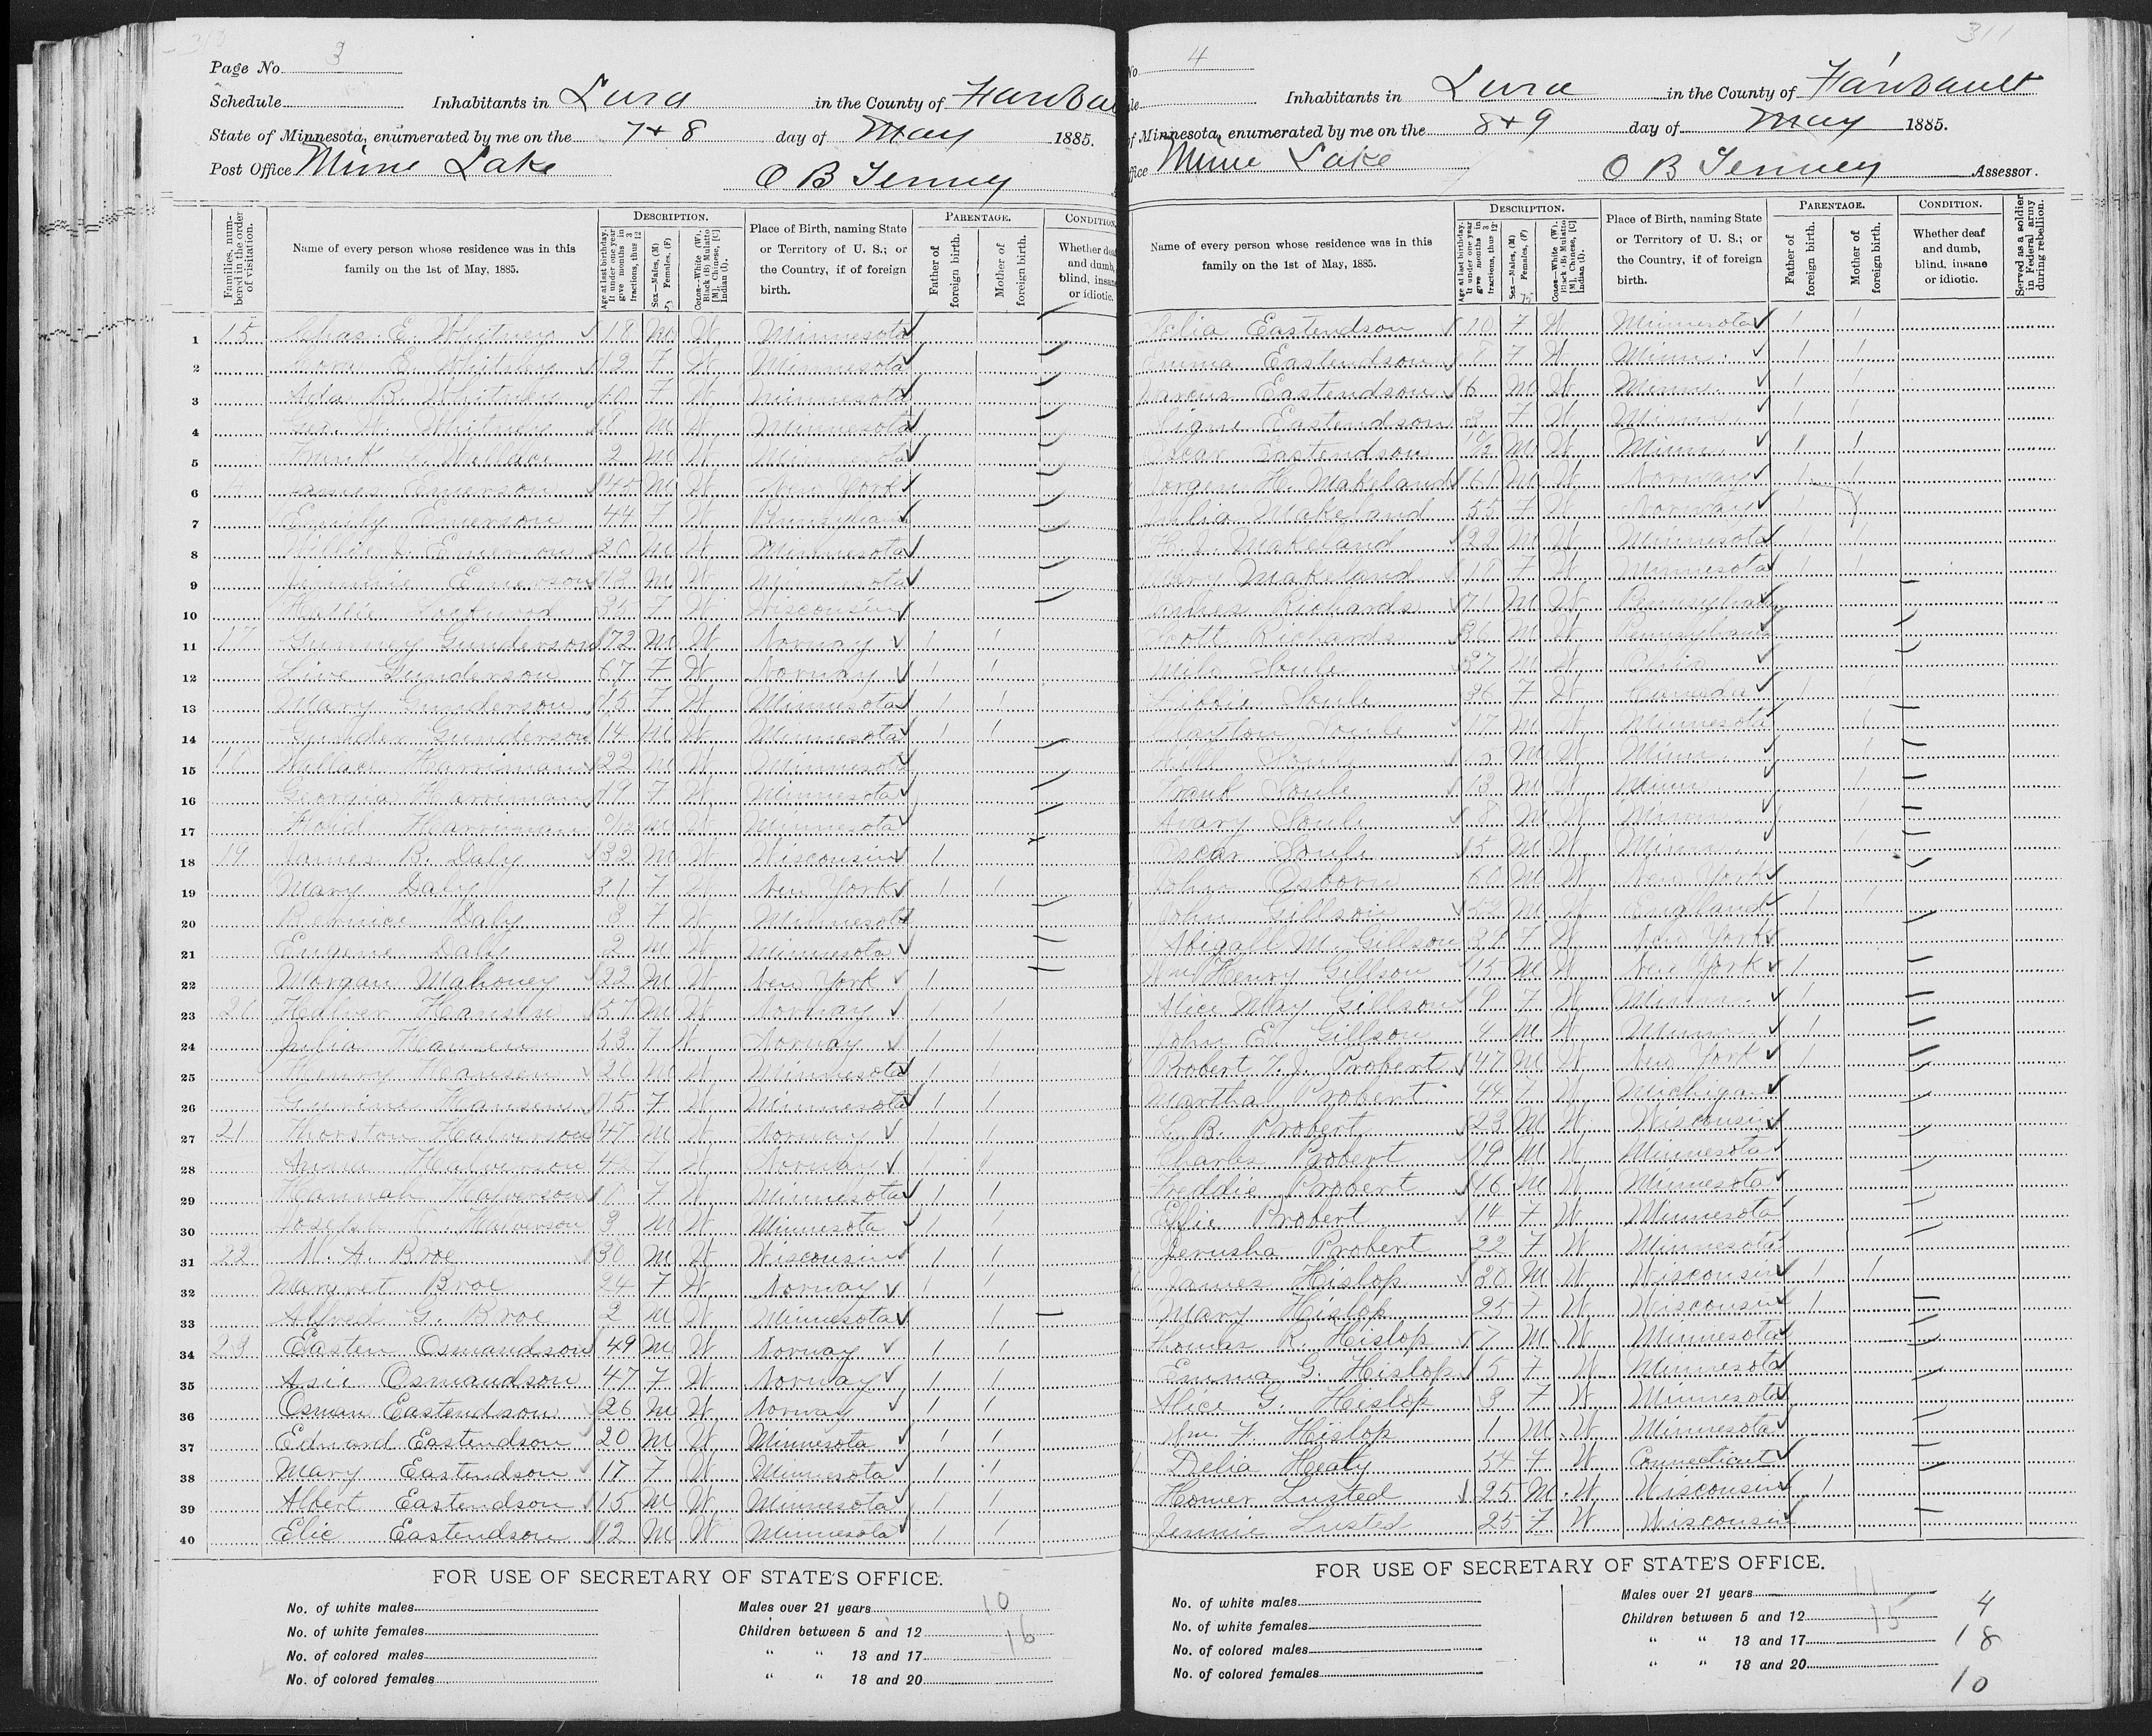 Page No. 3
Schedule Inhabitants in Lura in the County of Faribau
State of Minnesota, enumerated by me on the 7 + 8 day of May 1885.
Post Office Minn Lake
O B Tenney
Families, numbered in the order of visitation.
Name of every person whose residence was in this family on the 1st of May, 1885.
DESCRIPTION.
Age at last birthday. If under one year give months in fractions, thus 3/12
Sex—Males, (M) Females, (F)
Color—White (W), Black (B) Mulatto [M], Chinese, [C] Indian (I).
Place of Birth, naming State or Territory of U. S.; or the Country, if of foreign birth.
PARENTAGE.
Father of foreign birth.
Mother of foreign birth.
CONDITION.
Whether deaf and dumb, blind, insane or idiotic.
1 15 Chas. E. Whitney 18 M W Minnesota
2 Cora E. Whitney 12 F W Minnesota
3 Ada B. Whitney 10 F W Minnesota
4 Geo. W. Whitney 8 M W Minnesota
5 Frank 2 M W Minnesota
6 James Emerson 45 M W New York
7 Emily Emerson 44 F W Pennsylvania
8 Willie J. Emerson 20 M W Minnesota
9 Emerson 12 M W Minnesota
10 Hattie Lockwood 35 F W Wisconsin
11 17 Gunney Gunderson 72 M W Norway 1 1
12 Live Gunderson 67 F W Norway 1 1
13 Mary Gunderson 15 F W Minnesota 1 1
14 Gunder Gunderson 14 M W Minnesota 1 1
15 18 Wallace Harriman 22 M W Minnesota
16 Georgia Harriman 19 F W Minnesota
17 Harriman M W Minnesota
18 19 James B. Daly 32 M W Wisconsin 1
19 Mary Daly 31 F W New York 1 1
20 Bernice Daly 3 F W Minnesota
21 Eugene Daly 2 M W Minnesota
22 Morgan Mahoney 22 M W New York 1
23 20 Halver Hansen 57 M W Norway 1 1
24 Julia Hansen 53 F W Norway 1 1
25 Henry Hansen 20 M W Minnesota 1 1
26 Hansen 15 F W Minnesota 1 1
27 21 Thorston Halverson 47 M W Norway 1 1
28 Anna Halverson F W Norway 1 1
29 Hannah Halverson F W Minnesota 1 1
30 Joseph Halverson 3 M W Minnesota 1 1
31 22 N. A. Broe 30 M W Wisconsin 1 1
32 Margret Broe 24 F W Norway 1 1
33 Alfred G. Broe 2 M W Minnesota 1
34 23 Easten Osmandson 49 M W Norway 1 1
35 Asie Osmandson 47 F W Norway 1 1
36 Osman Eastendson 26 M W Norway 1 1
37 Edward Eastendson 20 M W Minnesota 1 1
38 Mary Eastendson 17 F W Minnesota 1 1
39 Albert Eastendson 15 M W Minnesota 1 1
40 Elic Eastendson 12 M W Minnesota 1 1
FOR USE OF SECRETARY OF STATE'S OFFICE.
No. of white males
No. of white females
No. of colored males
No. of colored females
Males over 21 years 10
Children between 5 and 12 16
" " 13 and 17
" " 18 and 20
311
No 4
Inhabitants in Lura in the County of Faribault
of Minnesota, enumerated by me on the 8 + 9 day of May 1885.
ffice Minn Lake
O B Tenney Assessor.
Name of every person whose residence was in this family on the 1st of May, 1885.
DESCRIPTION.
Age at last birthday. If under one year give months in fractions, thus 3/12
Sex—Males, (M) Females, (F)
Color—White (W), Black (B) Mulatto [M], Chinese, [C] Indian (I).
Place of Birth, naming State or Territory of U. S.; or the Country, if of foreign birth.
PARENTAGE.
Father of foreign birth.
Mother of foreign birth.
CONDITION.
Whether deaf and dumb, blind, insane or idiotic.
Served as a soldier in Federal army during rebellion.
Eastendson 10 F W Minnesota 1 1
Emma Eastendson 8 F W Minn. 1 1
Eastendson 6 M W Minn. 1 1
Signe Eastendson 3 F W Minn. 1 1
Oscar Eastendson M W Minn. 1 1
Jorgen H. Makeland 61 M W Norway 1 1
Julia Makeland 55 F W Norway 1
H. J. Makeland 22 M W Minnesota 1 1
Mary Makeland 18 F W Minnesota 1 1
James Richards 71 M W Pennsylvania
Scott Richards 36 M W Pennsylvania
Milo Soule 37 M W Ohio
Libbie Soule 36 F W Canada 1 1
Clayton Soule 17 M W Minnesota 1
Will Soule M W Minn. 1
Frank Soule 13 M W Minn 1
Avary Soule 8 M W Minn. 1
Oscar Soule 5 M W Minn. 1
John Osborn 60 M W New York
John Gillson 52 M W England 1 1
Abigail M. Gillson F W New York
Wm Henry Gillson 15 M W New York 1
Alice May Gillson 9 F W Minn. 1
John E. Gillson 4 M W Minn 1
Robert F. J. Probert 47 M W New York 1
Martha Probert 44 F W Michigan
B. Probert 23 M W Wisconsin
Charles Probert 19 M W Minnesota
Freddie Probert 16 M W Minnesota
Effie Probert 14 F W Minnesota
Jerusha Probert 22 F W Minnesota
James Hislop 30 M W Wisconsin 1 1
Mary Hislop 25 F W Wisconsin 1
Thomas R. Hislop 7 M W Minnesota
Emma G. Hislop 5 F W Minnesota
Alice G. Hislop 3 F W Minnesota
Wm F. Hislop 1 M W Minnesota
Delia Healy 54 F W Connecticut
Homer Lusted 25 M W Wisconsin 1
Jennie Lusted 25 F W Wisconsin
FOR USE OF SECRETARY OF STATE'S OFFICE.
No. of white males
No. of white females
No. of colored males
No. of colored females
Males over 21 years 11 4
Children between 5 and 12 15
" " 13 and 17 18
" " 18 and 20
10